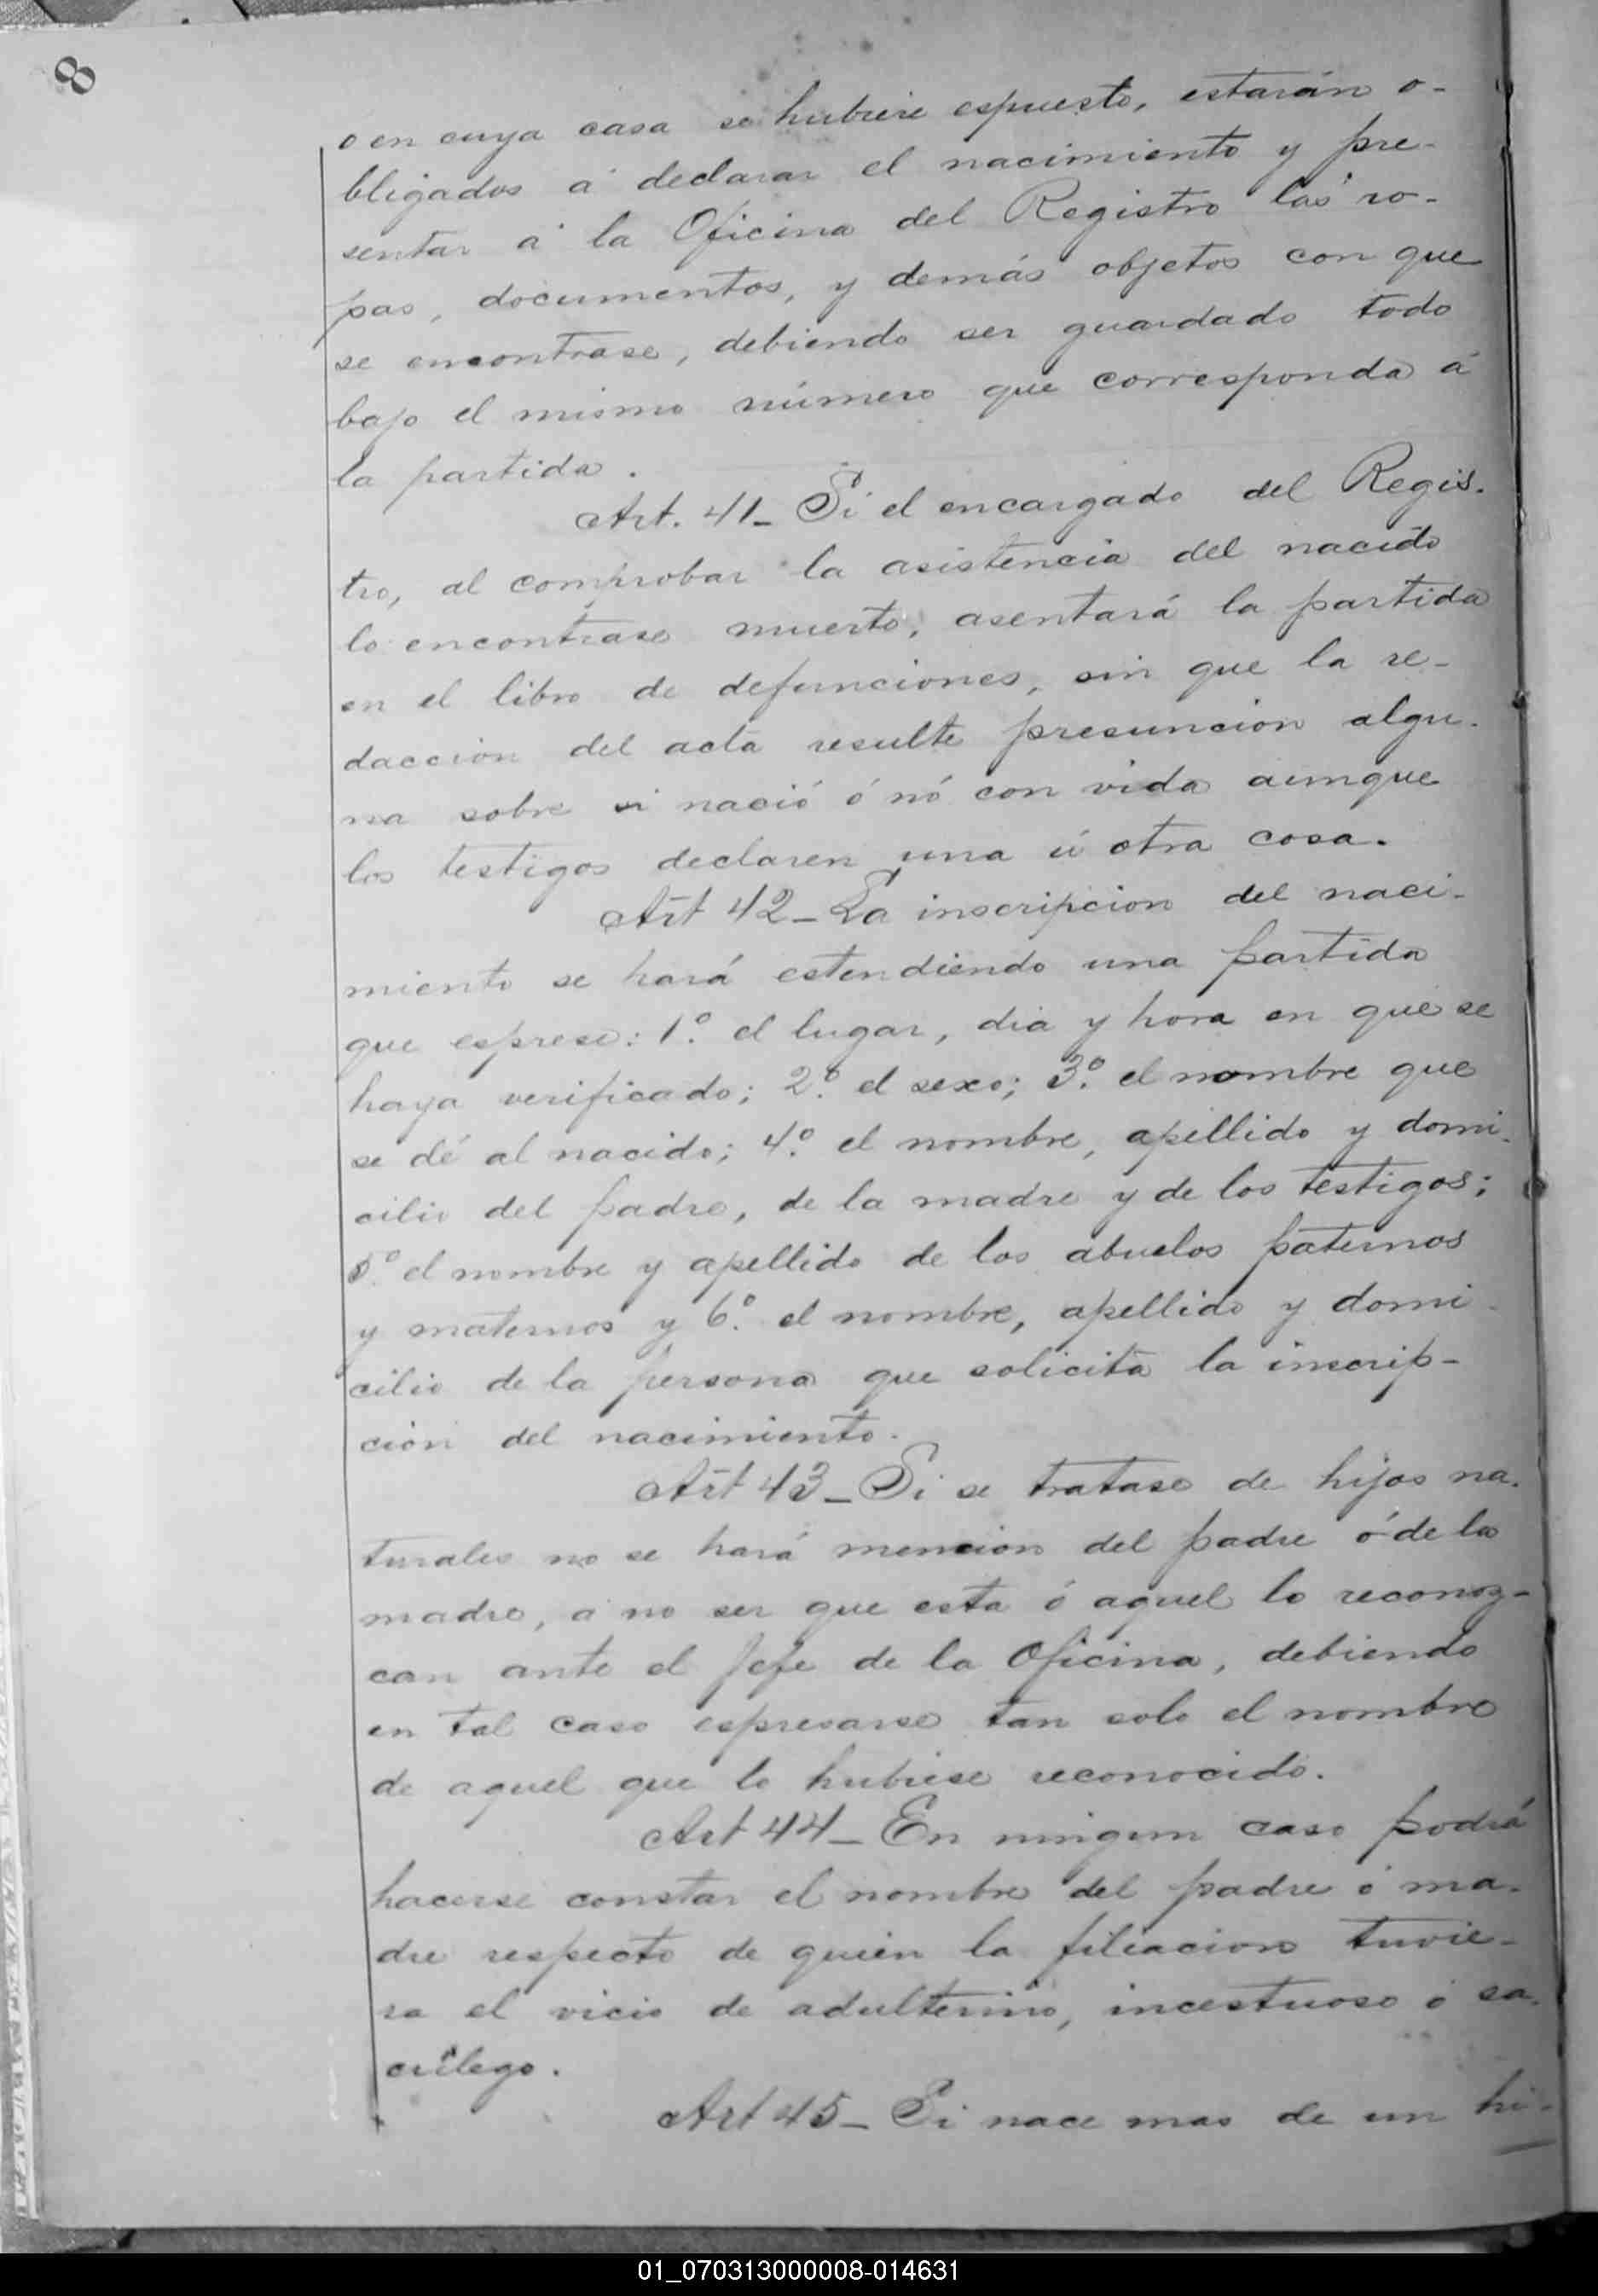 8
o en cuya casa se hubiere espuesto, estarán o-
bligados á declarar el nacimiento y pre-
sentar á la Oficina del Registro las ro-
pas, documentos, y demás objetos con que
se encontrase, debiendo ser guardado todo
bajo el mismo número que corresponda á
la partida.
Art. 41_ Si el encargado del Regis-
tro, al comprobar la asistencia del nacido
lo encontrase muerto, asentará la partida
en el libro de defunciones, sin que la re-
daccion del acta resulte presuncion algu-
na sobre si nació ó nó con vida aunque
los testigos declaren una ú otra cosa.
Art 42_ La inscripcion del naci-
miento se hará estendiendo una partida
que esprese: 1º. el lugar, dia y hora en que se
haya verificado; 2º. el sexo; 3º. el nombre que
se dé al nacido; 4º. el nombre, apellido y domi-
cilio del padre, de la madre y de los testigos;
5º. el nombre y apellido de los abuelos paternos
y maternos y 6º. el nombre, apellido y domi-
cilio de la persona que solicita la inscrip-
ción del nacimiento.
Art 43_ Si se tratase de hijos na-
turales no se hará mencion del padre ó de la
madre, a no ser que esta ó aquel lo reconoz-
can ante el Jefe de la Oficina, debiendo
en tal caso espresarse tan solo el nombre
de aquel que lo hubiese reconocido.
Art 44_ En ningun caso podrá
hacerse constar el nombre del padre ó ma-
dre respecto de quién la filiacion tuvie-
ra el vicio de adulterino, incestuoso ó sa-
crílego.
Art 45_ Si nace mas de un hi-
01_070313000008-014631